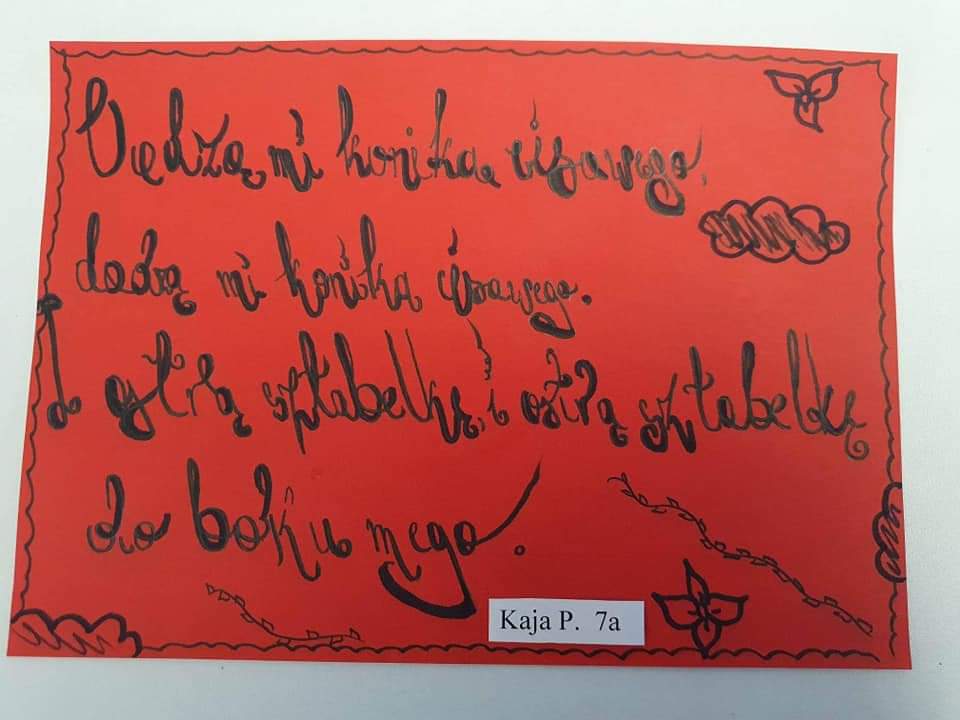 Dadzą mi konika cisawego,
dadzą mi konika cisawego.
I ostrą sztabelkę, i ostrą sztabelkę
do boku mego.
Kaja P. 7a